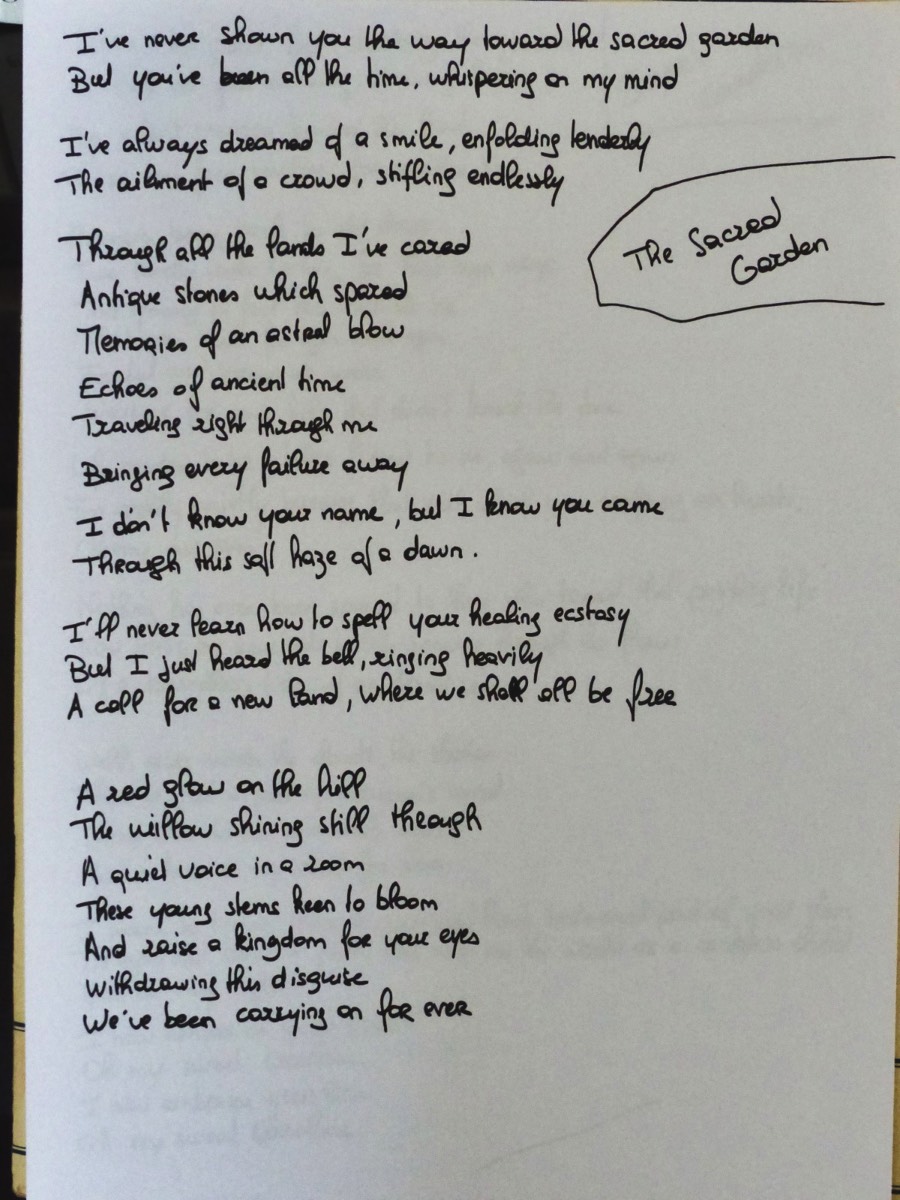 I've never shown you the way toward the sacred garden
But you've been all the time, whispering on my mind
I've always dreamed of a smile, enfolding tenderly
The ailment of a crowd, stifling endlessly
The Sacred
Garden
Through all the lands I've cared
Antique stones which spared
Memories of an astral blow
Echoes of ancient time
Traveling right through me
Bringing every failure away
I don't know your name, but I know you came
Through this salt haze of a dawn.
I'll never learn how to spell your healing ecstasy
But I just heard the bell, ringing heavily
A call for a new land, where we shall all be free
A red glow on the hill
The willow shining still through
A quiet voice in a room
These young stems keen to bloom
And raise a kingdom for your eyes
Withdrawing this disguise
We've been carrying on for ever